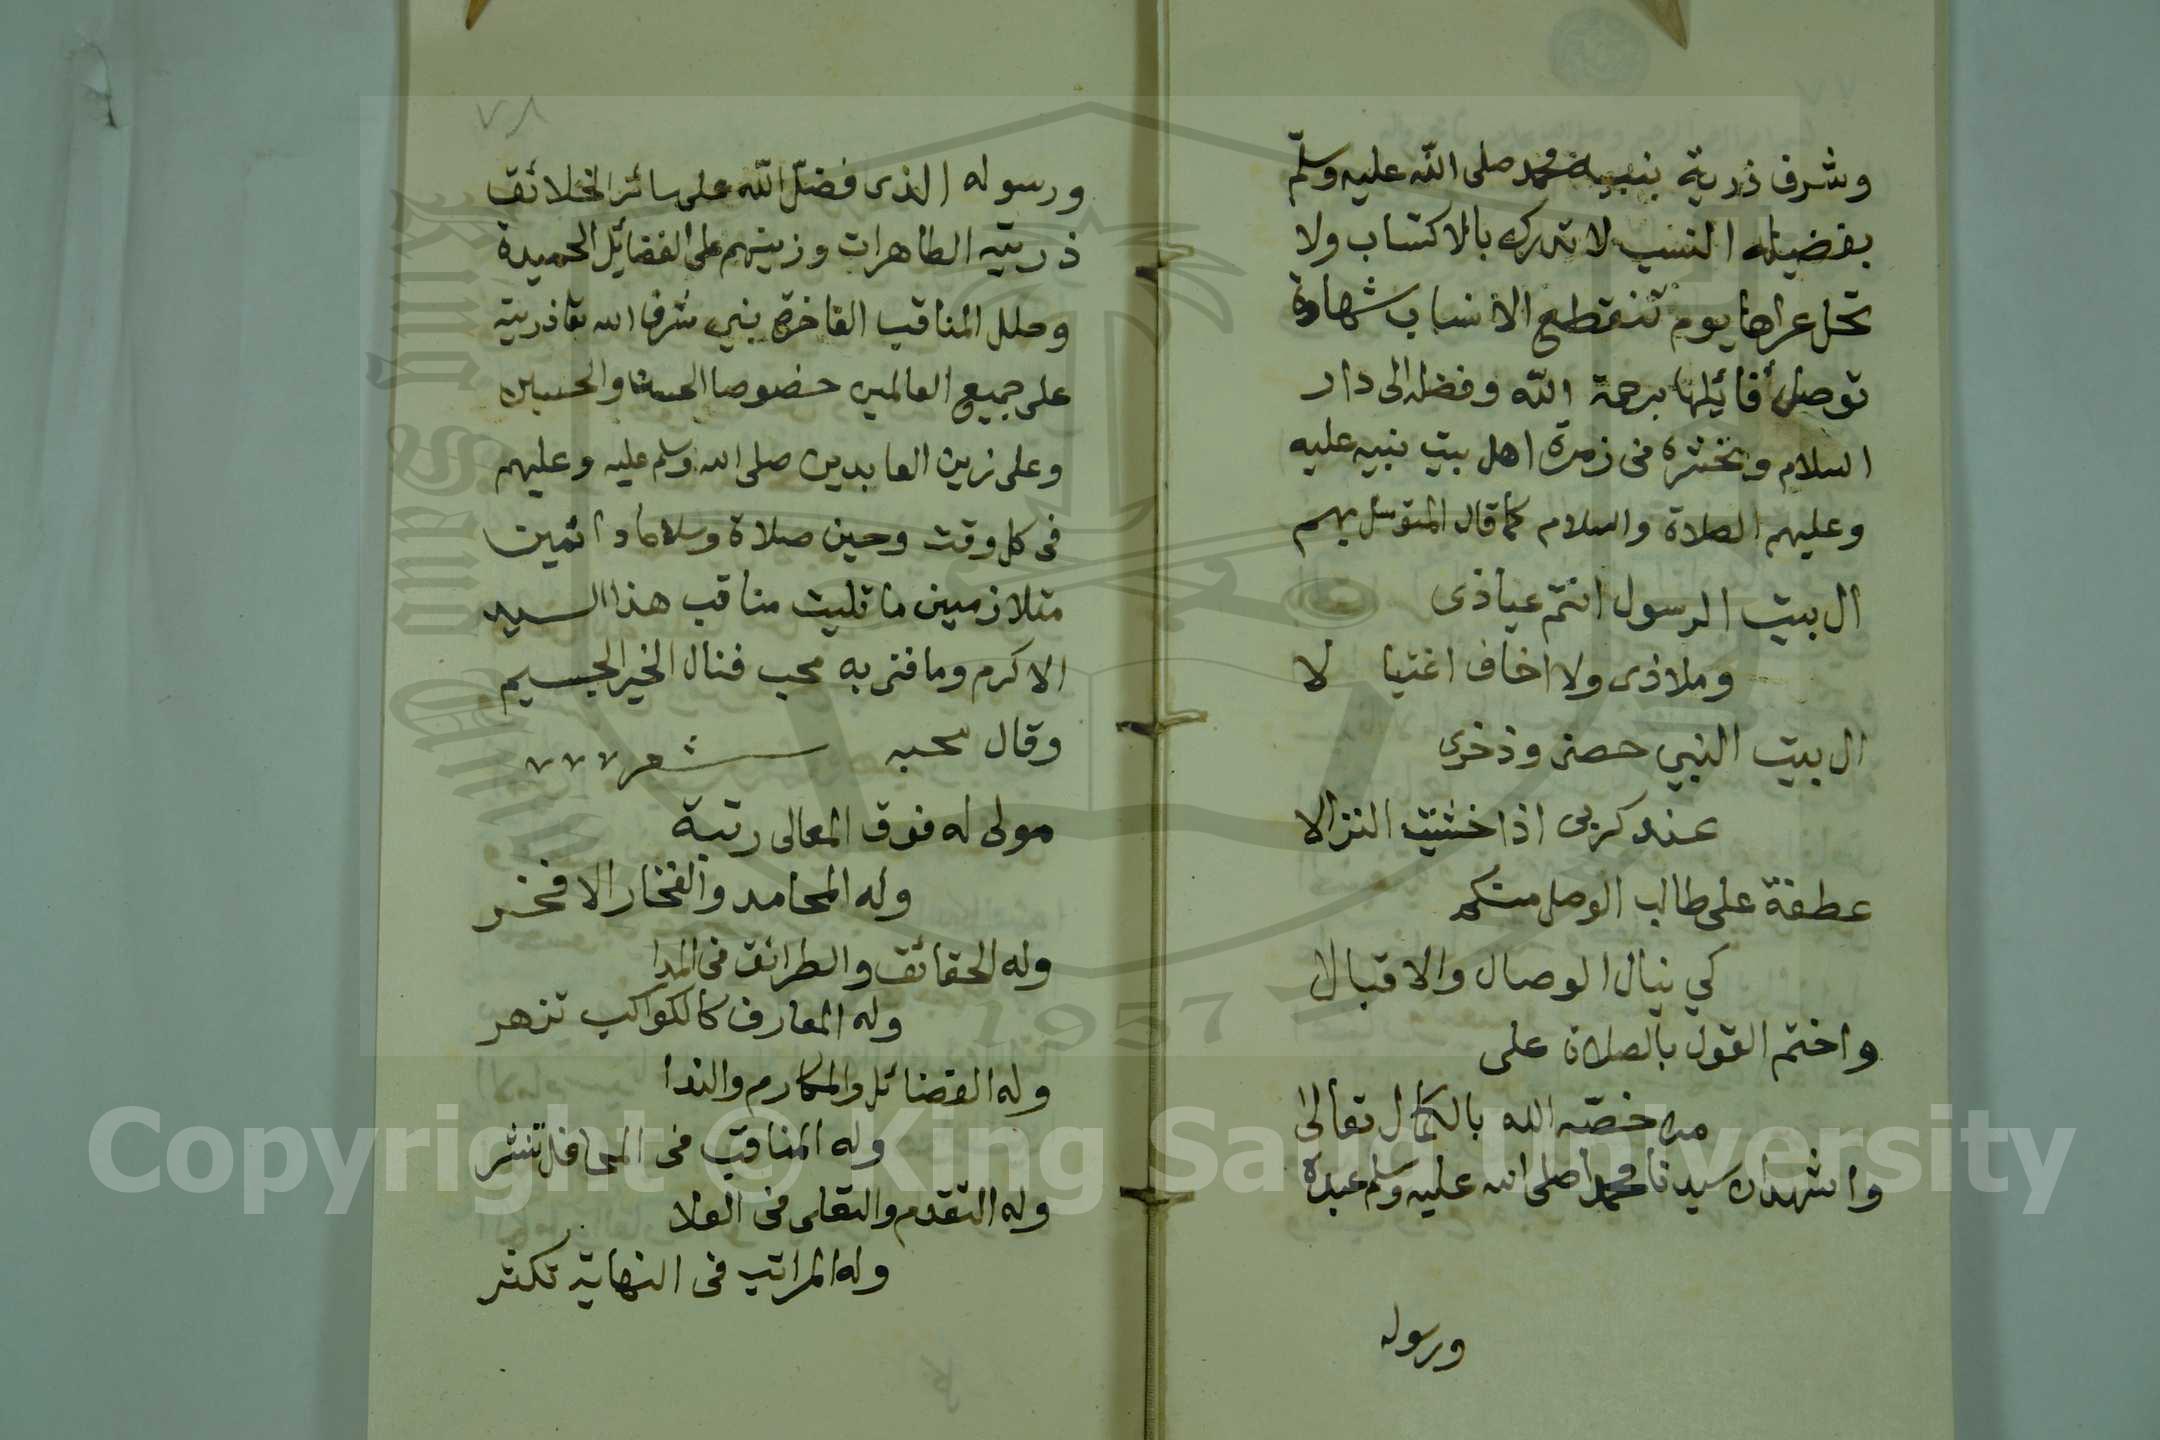 وشرف ذرية بنبيه محمد صلى الله عليه وسلم
بفضيله النسب لا تدرك بالاكتساب ولا
تحل عراها يوم تنقطع الانساب شهادة
توصل قائلها برحمة الله وفضله الى دار
السلام وتحشره فى زمرة اهل بيت نبيه عليه
وعليهم الصلاة والسلام كما قال المتوسل بهم
ال بيت الرسول انتم عياذى
وملاذى ولا اخاف اغتيا لا
ال بيت النبي حصنى وذخرى
عند كربى اذا خشيت النزالا
عطفة على طالب الوصل منكم
كي ينال الوصال والاقبالا
واختم القول بالصلاة على
من خصه الله بالكمال تعالى
واشهد ان سيدنا محمدا صلى الله عليه وسلم عبده
ورسوله
٧٨
ورسوله الذى فضل الله على سائر الخلائق
ذريته الطاهرات وزينهم على الفضائل الحميدة
وحلل المناقب الفاخرة بنبي شرف الله تعا ذريته
على جميع العالمين خصوصا الحسن والحسين
وعلى زين العابدين صلى الله وسلم عليه وعليهم
فى كل وقت وحين صلاة وسلاما دائمين
متلازمين ما تليت مناقب هذا السيد
الاكرم وما فتر به محب فنال الخير الجسيم
وقال محبه شعر
مولى له فوق المعالى رتبة
وله المحامد والفخار الافخر
وله الحقائق والطرائق فى المدا
وله المعارف كالكواكب تزهر
وله الفضائل والمكارم والندا
وله المناقب فى المحافل تنشر
وله التقدم والتعلى فى العلا
وله المراتب فى النهاية تكثر
Copyright © King Saud University
King Saud University
1957